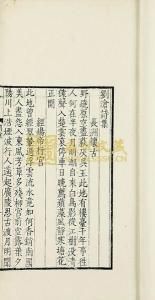 劉滄詩集
長洲懷古
野燒原空盡荻灰吳王此地有樓臺千年事往
人何在半夜月明潮自來白鳥影從江樹沒清
猿聲入楚雲哀停車日晚薦蘋藻風靜寒塘花
正開
經煬帝行宮
此地曾經翠輦過浮雲流水竟如何香銷南國
美人盡怨入東風芳草多殘柳宮前空露葉夕
陽川上浩煙波行人遙起廣陵思古渡月明聞